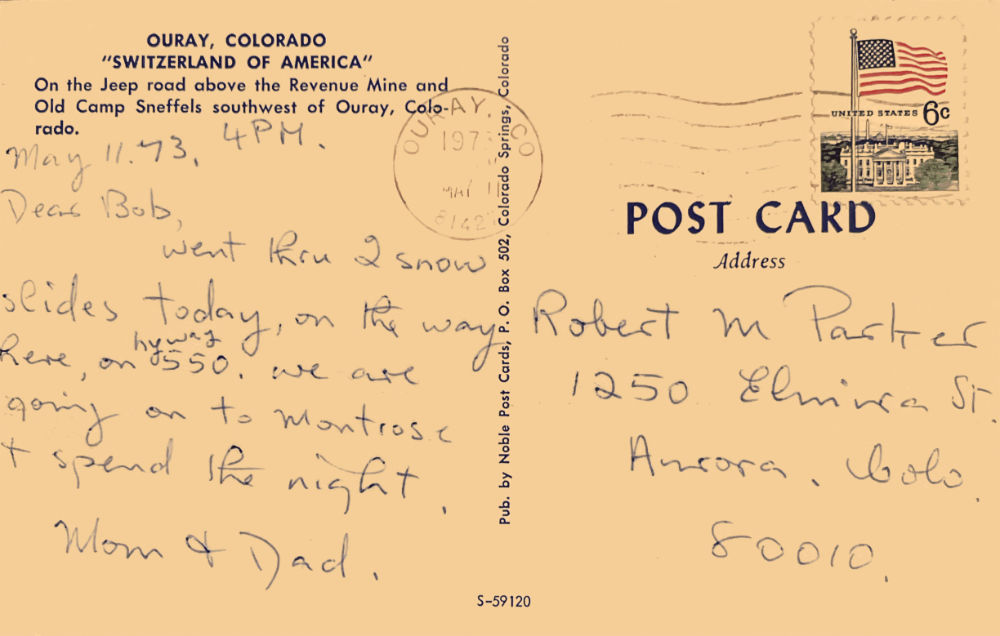 OURAY, COLORADO
"SWITZERLAND OF AMERICA"
On the Jeep road above the Revenue Mine and
Old Camp Sneffels southwest of Ouray, Colo-
rado.
May 11. 73, 4 PM.
Dear Bob,
went thru 2 snow
slides today, on the way
here, on hyway 550. we are
going on to Montrose
+ spend the night.
Mom & Dad.
Pub. by Noble Post Cards, P. O. Box 502, Colorado Springs, Colorado
OURAY, CO
1973
MAY 11
8142
UNITED STATES 6c
POST CARD
Address
Robert M Parker
1250 Elmira St.
Aurora. Colo.
80010.
S-59120